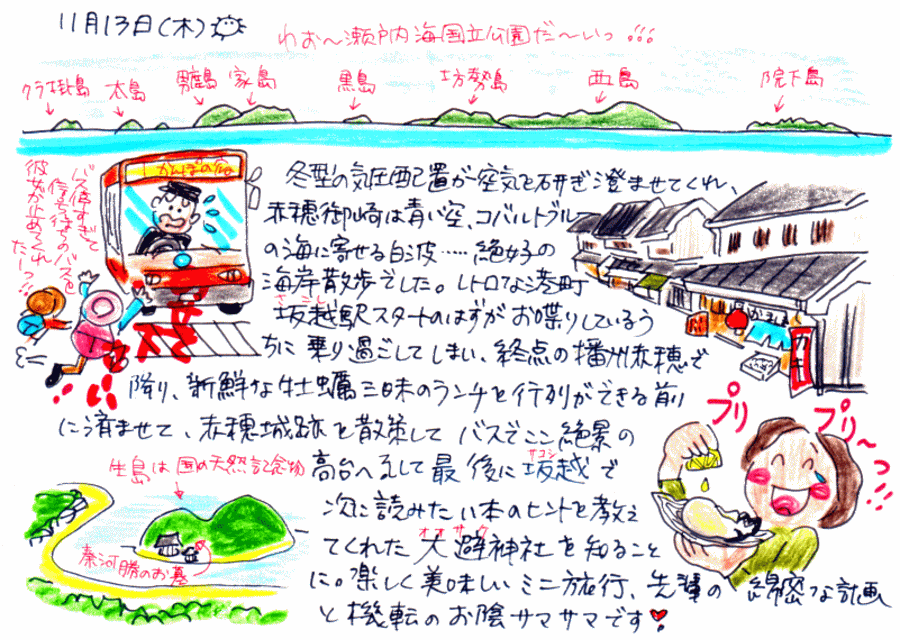 11月13日(木)
わお〜瀬戸内海国立公園だ〜いっ!!!
クラ掛島
太島
男鹿島
家島
黒島
坊勢島
西島
院下島
かんぽの宿
バス停すぎて
信号待ちのバスを
彼女が止めてくれ
たーっ!!
冬型の気圧配置が空気を研ぎ澄ませてくれ、
赤穂御崎は青い空、コバルトブルー
の海に寄せる白波……絶好の
海岸散歩でした。レトロな港町
さこし
坂越駅スタートのはずがお喋りしているう
ちに乗り過ごしてしまい、終点の播州赤穂で
降り、新鮮な牡蠣三昧のランチを行列ができる前
に済ませて、赤穂城跡を散策してバスでここ絶景の
高台へ。そして最後に坂越で
サコシ
次に読みたい本のヒントを教え
てくれた大避神社を知ること
オオサケ
に。楽しく美味しいミニ旅行、先輩の綿密な計画
と機転のお陰サマサマです
カキ
プリ
プリ〜
っ!!
生島は国の天然記念物
秦河勝のお墓